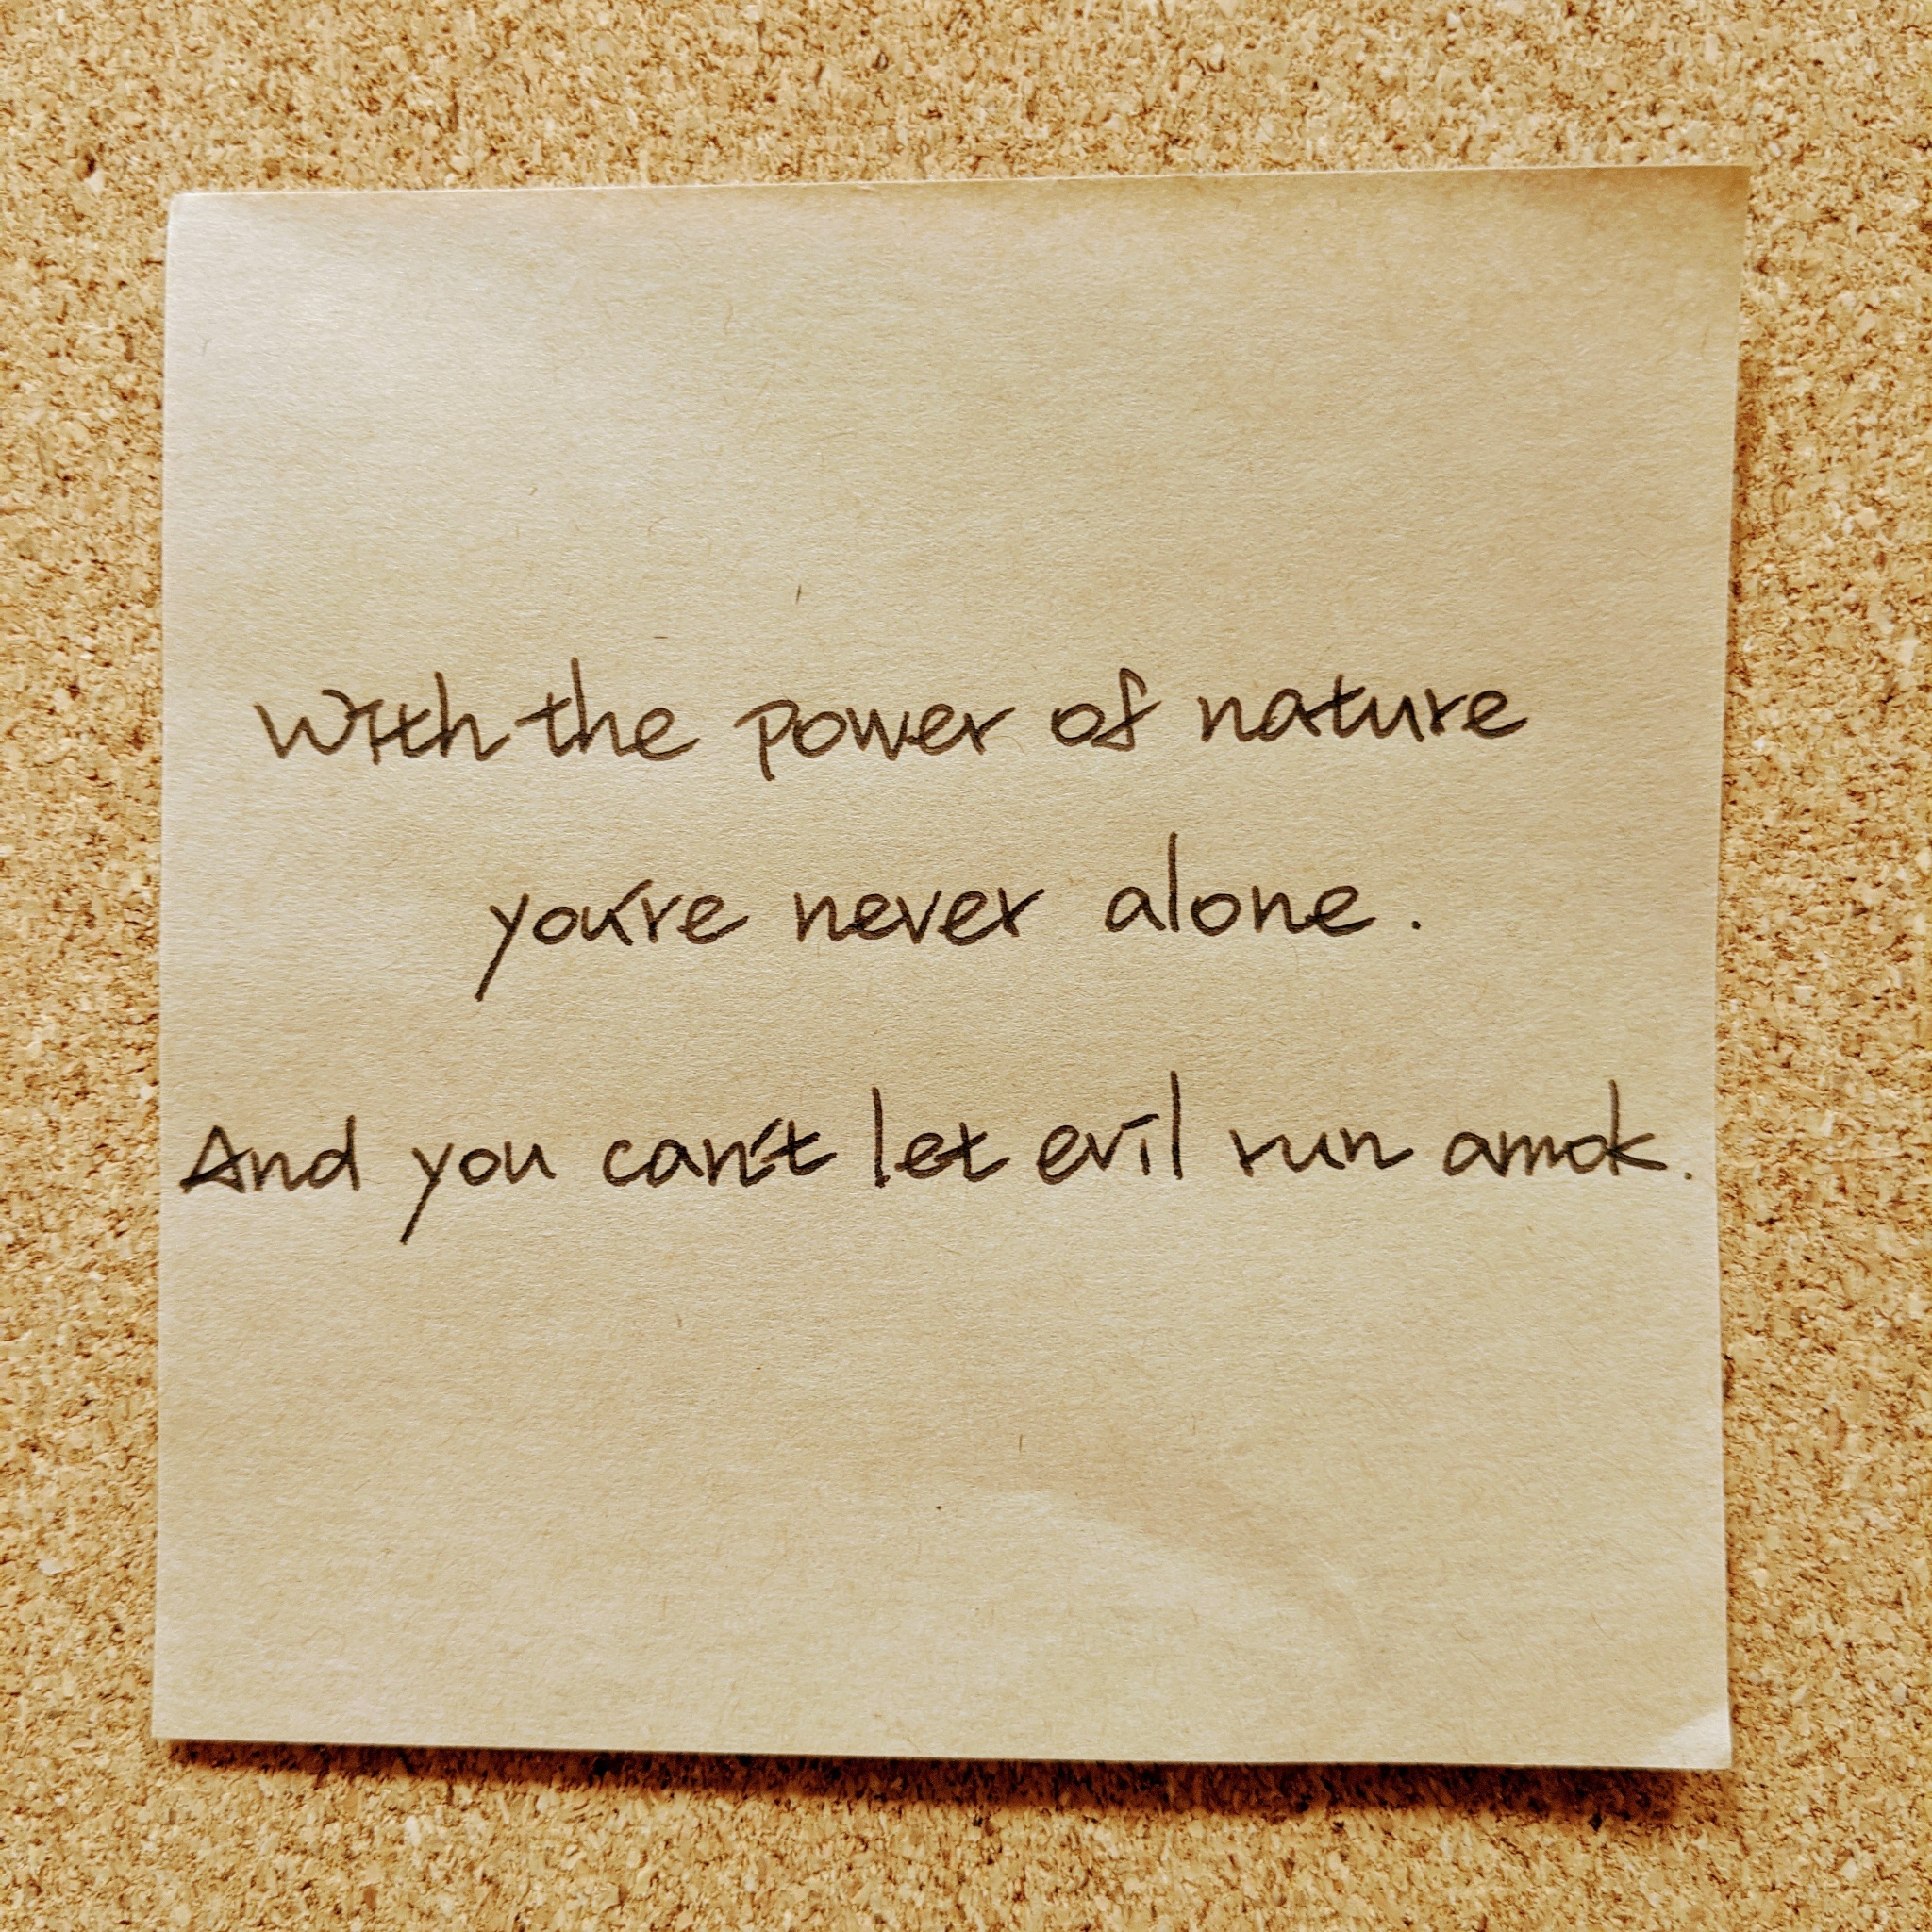 With the power of nature
you're never alone.
And you can't let evil run amok.